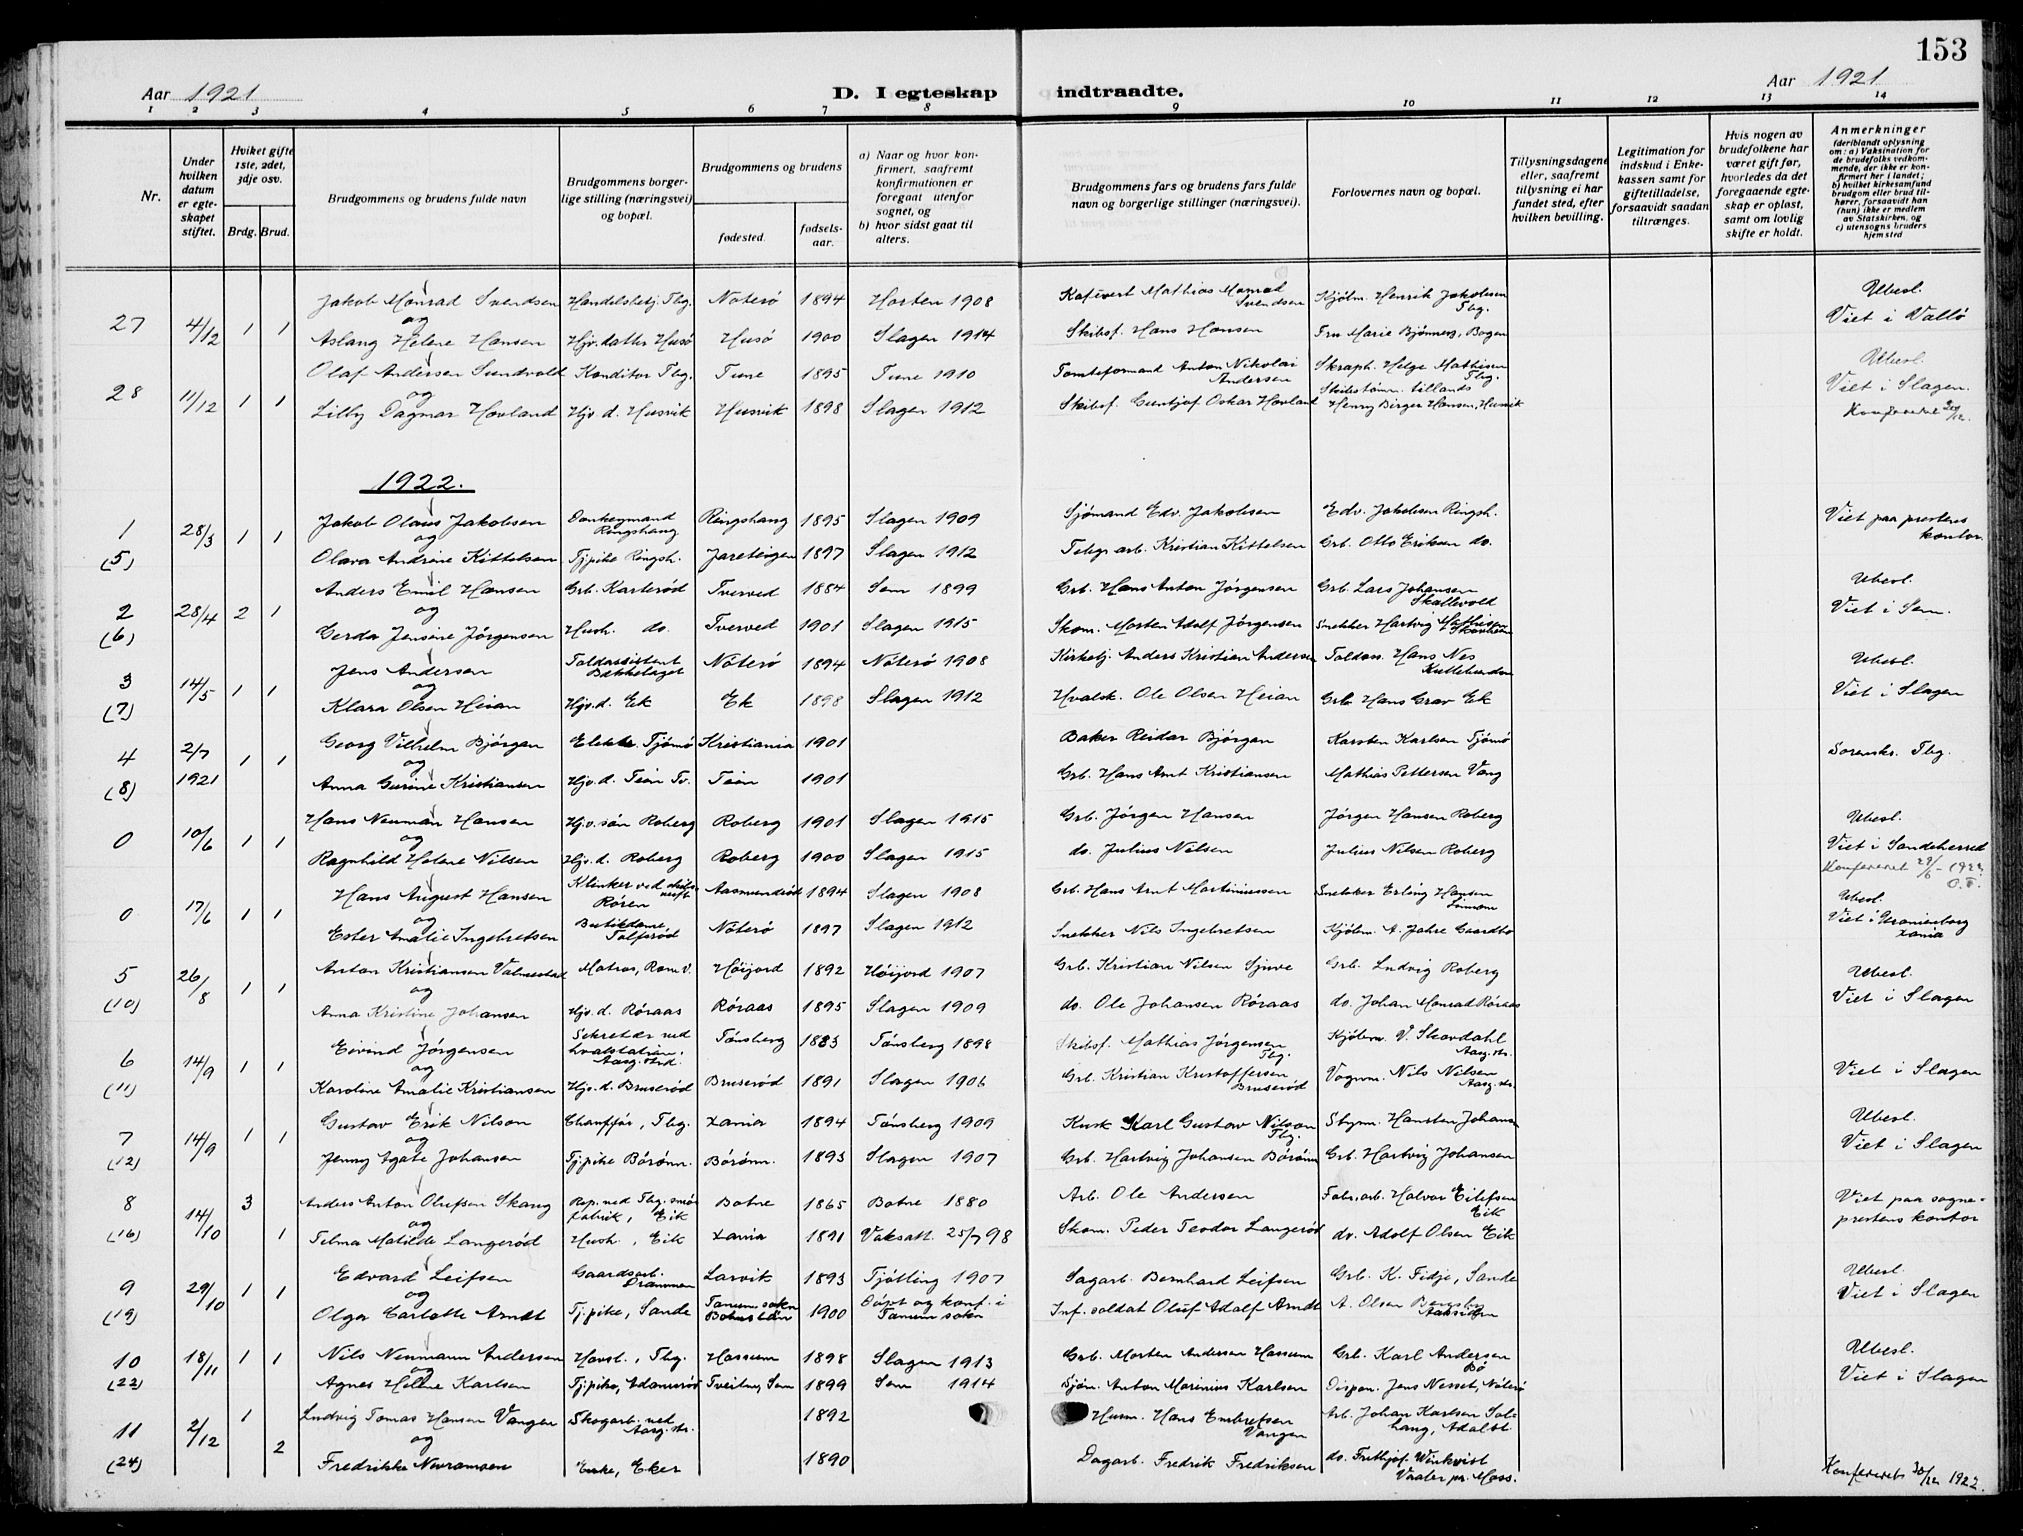 153
Aar 1921
D. I egteskap indtraadte.
Aar 1921
1 2 3 4 5 6 7 8 9 10 11 12 13 14
Nr.
Under hvilken datum er egteskapet stiftet.
Hviket gifte 1ste, 2det, 3dje osv.
Brdg. Brud.
Brudgommens og brudens fulde navn
Brudgommens borgerlige stilling (næringsvei) og bopæl.
Brudgommens og brudens
fødested.
fødselsaar.
a) Naar og hvor konfirmert, saafremt konfirmationen er foregaat utenfor sognet, og
b) hvor sidst gaat til alters.
Brudgommens fars og brudens fars fulde navn og borgerlige stillinger (næringsvei).
Forlovernes navn og bopæl.
Tillysningsdagene eller, saafremt tillysning ei har fundet sted, efter hvilken bevilling.
Legitimation for indskud i Enkekassen samt for giftetilladelse, forsaavidt saadan tiltrænges.
Hvis nogen av brudefolkene har været gift før, hvorledes da det foregaaende egteskap er opløst, samt om lovlig skifte er holdt.
Anmerkninger (deriblandt oplysning om: a) Vaksination for de brudefolks vedkommende, der ikke er konfirmert her i landet; b) hvilket kirkesamfund brudgom eller brud tilhører, forsaavidt han (hun) ikke er medlem av Statskirken, og c) utensogns bruders hjemsted
Jakob Monrad Svendsen Handelsbetj. Tbg. Nøterø 1894 Horten 1908 Mathias Monrad Svendsen Kjøbm. Henrik Jakobsen Tbg. Ubesl.
27 4/12 1 1 og Viet i Vallø
Aslaug Helene Hansen Hjv. datter Husø Husø 1900 Slagen 1914 Skibsf. Hans Hansen Fru Marie Bjønnes, Bogen
Olaf Andersen Sundvold Konditor Tbg. Tune 1895 Tune 1910 Tomteformand Anton Nikolai Andersen Skraph. Helge Mathisen Tbg. Ubesl.
28 11/12 1 1 og Skibstøm. tillands Viet i Slagen.
Lilly Dagmar Hovland Hjv. d. Husvik Husvik 1898 Slagen 1912 Skibsf. Guntjof Oskar Hovland Henry Birger Hansen, Husvik Konfereret 30/12.
1922.
Jakob Olaus Jakobsen Donkeymand Ringshaug Ringshaug 1895 Slagen 1909 Sjømand Edv. Jakobsen Edv. Jakobsen Ringsh. Viet paa prestens kontor.
1 28/3 1 1 og
(5) Olava Andrine Kittelsen Tj.pike Ringsh. Jareteigen 1897 Slagen 1912 Telegr. arb. Kristian Kittelsen Grb. Otto Eriksen do.
Anders Emil Hansen Grb. Karterød Tverved 1884 Sem 1899 Grb. Hans Anton Jørgensen Grb. Lars Johansen Skallevold Ubesl.
2 28/4 2 1 og Viet i Sem.
(6) Gerda Jensine Jørgensen Hush. do. Tverved 1901 Slagen 1915 Skom. Morten Adolf Jørgensen Snekker Hartvig Mathisen
Jens Andersen Toldassistent Bækkelaget Nøterø 1894 Nøterø 1908 Kirketj. Anders Kristian Andersen Toldass. Hans Nes Ubesl.
3 14/5 1 1 og Viet i Slagen
(7) Klara Olsen Heian Hjv. d. Ek Ek 1898 Slagen 1912 Hvalsk. Ole Olsen Heian Grb. Hans Grav Ek
Georg Vilhelm Bjørgen Elektr. Tjømø Kristiania 1901 Baker Reidar Bjørgen Karsten Karlsen Tjømø
4 2/7 1921 1 1 og Sorenskr. Tbg.
(8) Anna Gurine Kristiansen Hjv. d. Teien Tv. Teien 1901 Grb. Hans Arnt Kristiansen Mathias Pettersen Vang
Hans Neuman Hansen Hjv. søn Roberg Roberg 1901 Slagen 1915 Grb. Jørgen Hansen Jørgen Hansen Roberg Ubesl.
0 10/6 1 1 og Viet i Sandeherred
Ragnhild Helene Nilsen Hjv. d. Roberg Roberg 1900 Slagen 1915 do. Julius Nilsen Julius Nilsen Roberg Konfereret 29/6 - 1922 O.F.
Hans August Hansen Klinker ved Røren Aasmundrød 1894 Slagen 1908 Grb. Hans Arnt Martiniussen Snekker Erling Hansen Ubesl.
0 17/6 1 1 og Viet i Uranienborg Xania
Ester Amalie Ingebretsen Butikdame, Tolfsrød Nøterø 1897 Slagen 1912 Snekker Nils Ingebretsen Kjøbm. A. Jahre Gaardbo
Anton Kristiansen Valmestad Matros, Ram V. Høijord 1892 Høijord 1907 Grb. Kristian Nilsen Sjuve Grb. Ludvig Roberg Ubesl.
5 26/8 1 1 og
(10) Anna Kristine Johansen Hjv. d. Røraas Røraas 1895 Slagen 1909 do. Ole Johansen Røraas do. Johan Monrad Røraas Viet i Slagen
Eivind Jørgensen Sekretær ved hvalstation. Tønsberg 1883 Tønsberg 1898 Skibsf. Mathias Jørgensen Tbg. Kjøbm. V. Skovdahl Aasg. str.
6 14/9 1 1 og Viet i Slagen
(11) Karoline Amalie Kristiansen Hjv. d. Bruserød Bruserød 1891 Slagen 1906 Grb. Kristian Kristoffersen Bruserød Vognm. Nils Nilsen Aasg. str.
Gustav Erik Nilson Chauffør, Tbg. Xania 1894 Tønsberg 1909 Kusk Karl Gustav Nilson Tbg. Styrm. Hansten Johansen Ubesl.
7 14/9 1 1 og Viet i Slagen
(12) Jenny Agate Johansen Tj.pike Børønn. Børønn. 1893 Slagen 1907 Grb. Hartvig Johansen Børønn Grb. Hartvig Johansen
8 3 Anders Anton Olufsen Skaug Rep. ved Tbg. smør fabrik, Eik Botne 1865 Botne 1880 Arb. Ole Andersen Fabr.arb. Halvor Eilefsen Eik Viet paa sogne-
14/10 og prestens kontor
(16) 1 Telma Matilde Langerød Hush., Eik Xania 1891 Vaksatt. 25/7 98 Skom. Peder Teodor Langerød do. Adolf Olsen Eik
Edvard Leifsen Gaardsarb. Drammen Larvik 1893 Tjølling 1907 Sagarb. Bernhard Leifsen Grb. K. Fidje, Sande Ubesl.
9 29/10 1 1 og Viet i Slagen
(19) Olga Carlotte Arndt Tj.pike, Sande Tanum sokn Bohuslän 1900 Døpt og konf. i Tanum sokn Inf. soldat Oluf Adolf Arndt A. Olsen
Nils Neumann Andersen Havsl., Tbg. Hassum 1898 Slagen 1913 Grb. Morten Andersen Hassum Grb. Karl Andersen Bø Ubesl.
10 18/11 1 1 og
(22) Agnes Helene Karlsen Tj.pike, Adamsrød Tveiten, Sem 1899 Sem 1914 Sjøm. Anton Marinius Karlsen Dispon. Jens Nesset, Nøterø Viet i Slagen
Ludvig Tomas Hansen Vangen Skogarb. ved Aasg. str. 1892 Husm. Hans Embretsen Vangen Arb. Johan Karlsen
11 2/12 1 2 og
(24) Fredrikke Enke, Eker 1890 Dagarb. Fredrik Fredriksen do. Frithjof Winkvist Vaaler pr. Moss. Konfereret 30/12 1922.